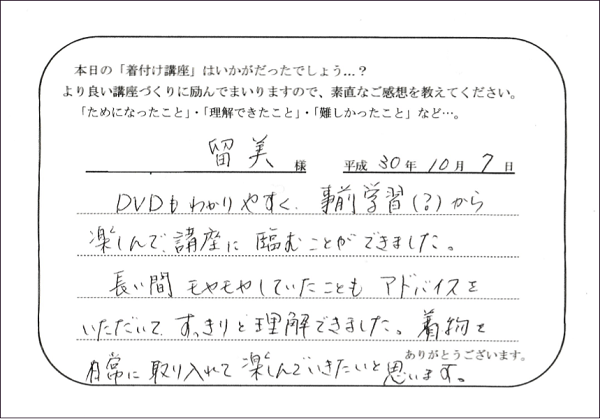 本日の「着付け講座」はいかがだったでしょう…?
より良い講座づくりに励んでまいりますので、素直なご感想を教えてください。
「ためになったこと」・「理解できたこと」・「難しかったこと」など…。
留美 様 平成 30 年 10 月 7 日
DVDもわかりやすく、事前学習(?)から
楽しんで、講座に臨むことができました。
長い間モヤモヤしていたことも アドバイスを
いただいて、すっきりと理解できました。着物を
日常に取り入れて楽しんでいきたいと思います。
ありがとうございます。